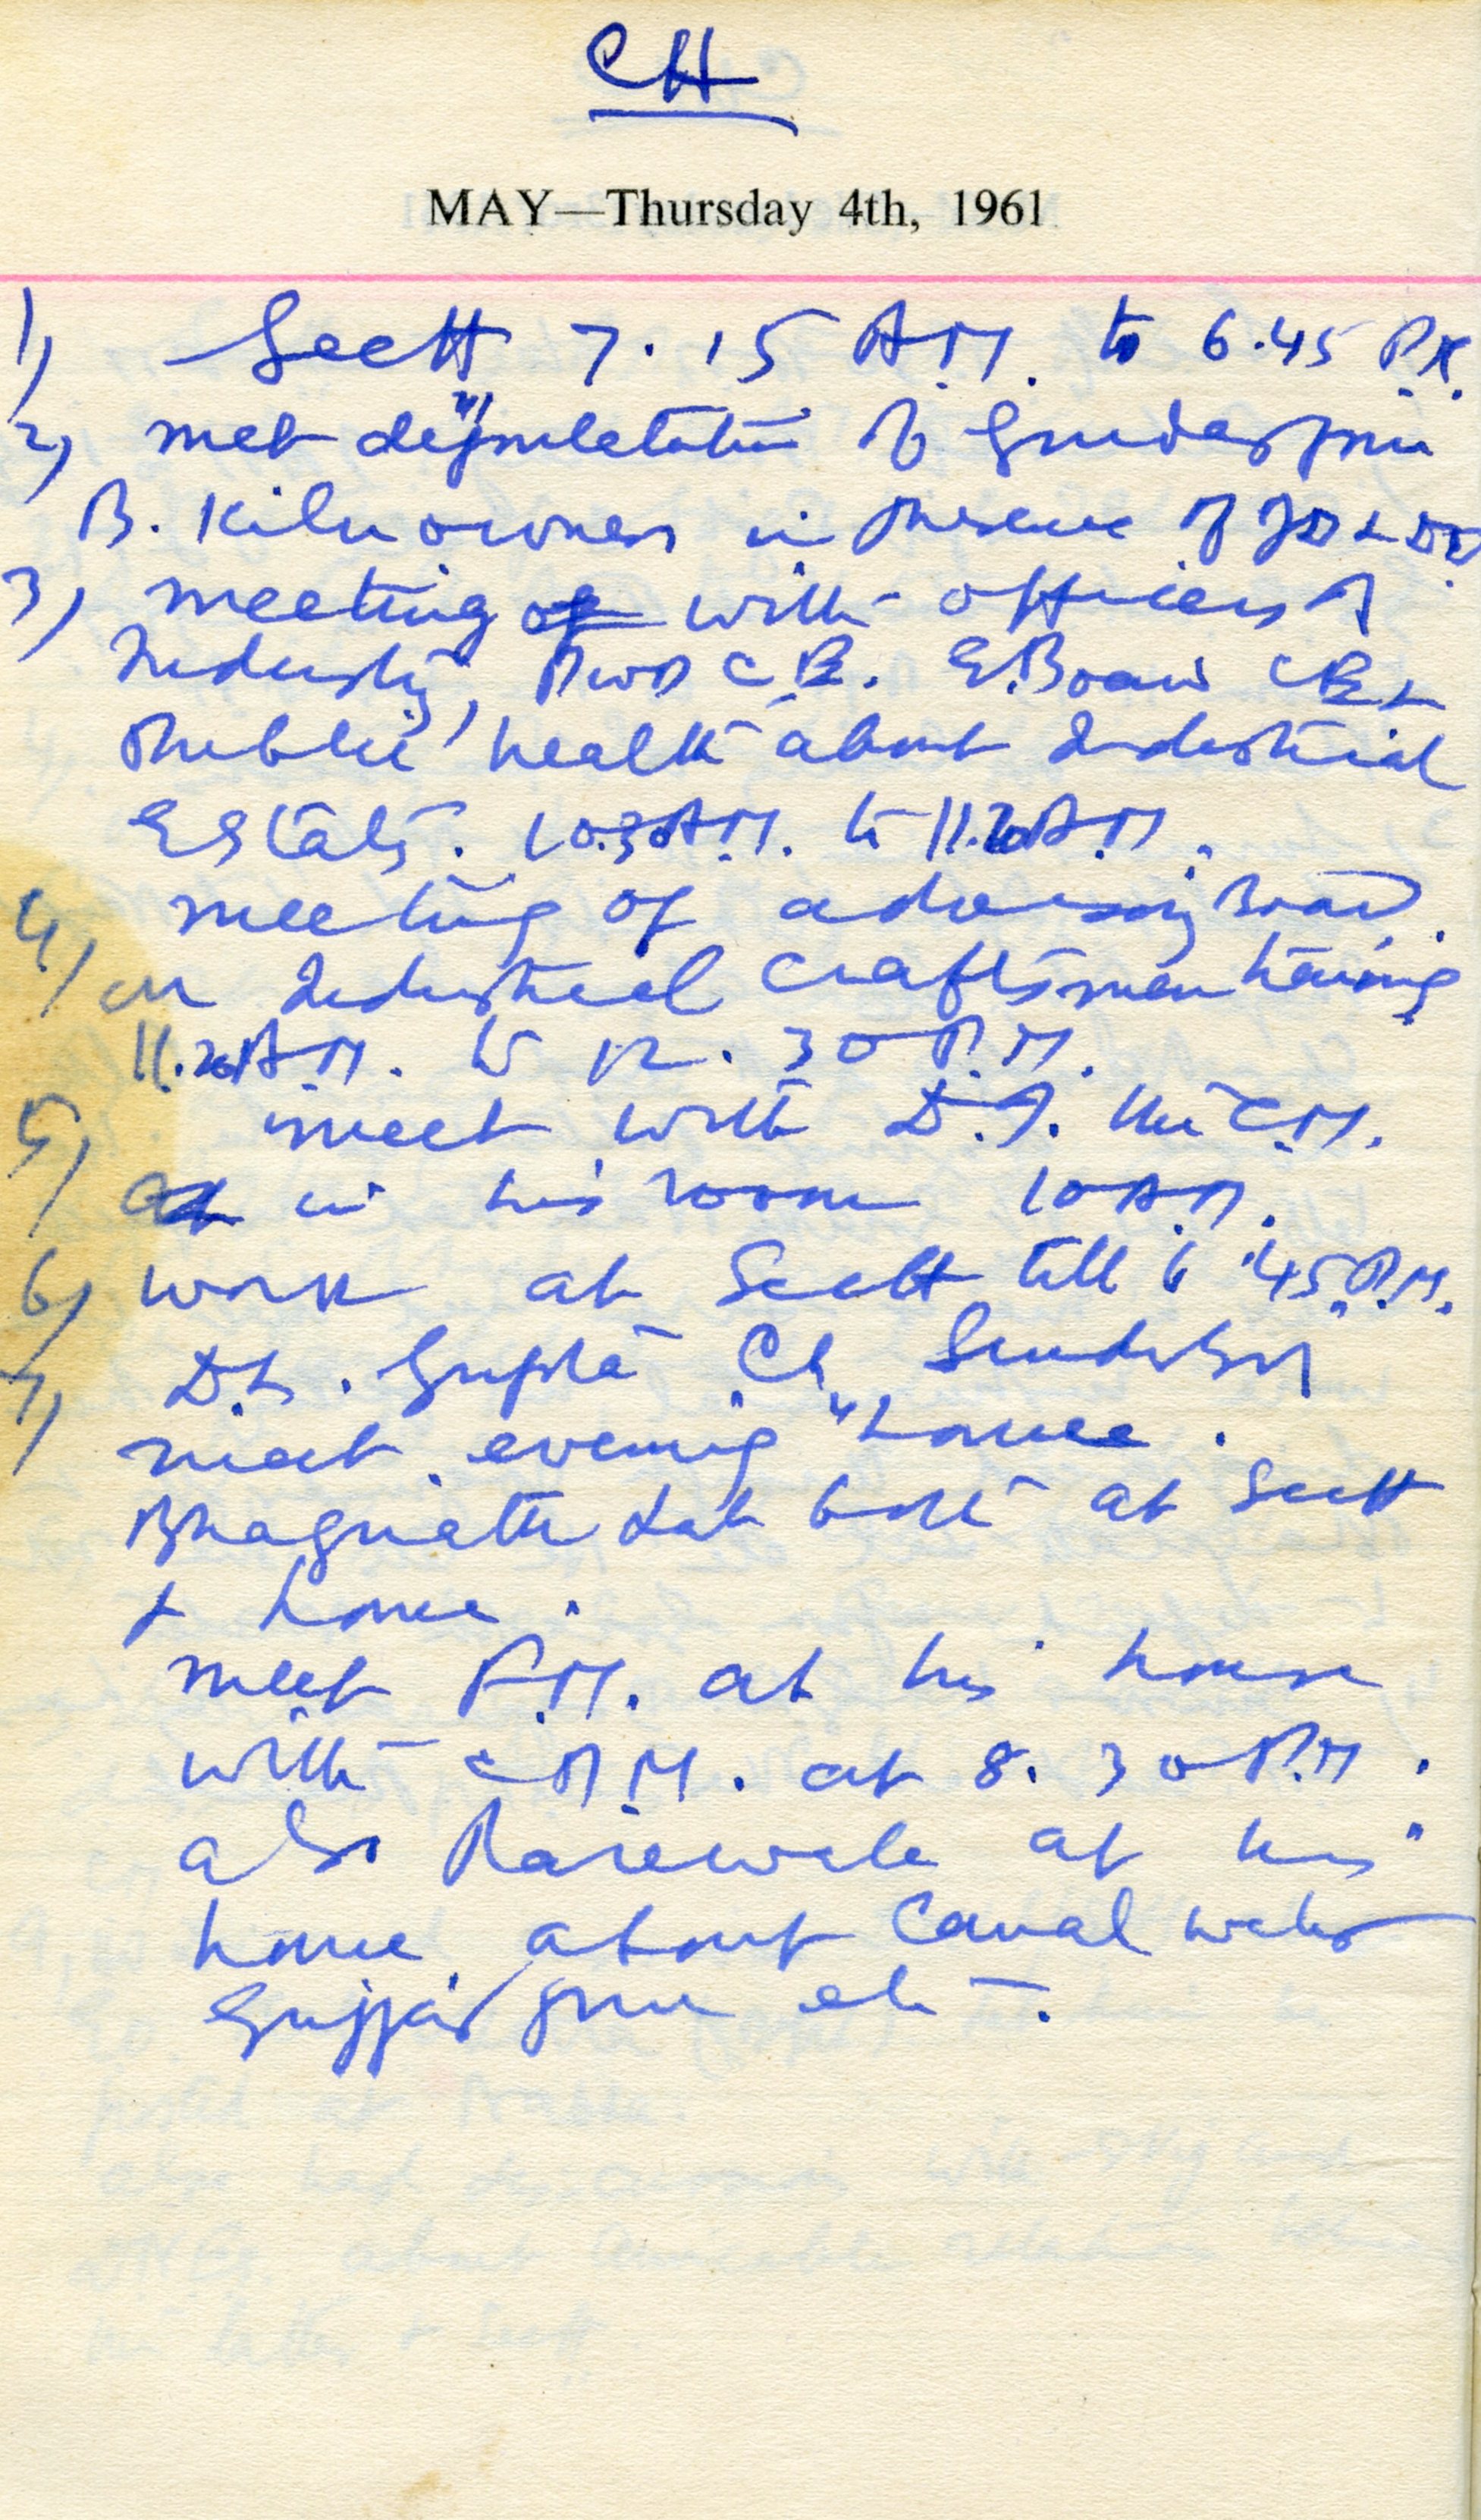 CH
MAY—Thursday 4th, 1961
1) Sectt 7.15 A.M. to 6.45 P.M.
2) met deputation of Gurdaspur
B. Kiln owners in presence of JD & DD
3) meeting of with officers of
Industry, PWD C.E. E.Board CE &
Public health about Industrial
Estates. 10.30 A.M. to 11.20 A.M.
4) meeting of advisory Board
on Industrial Craftsmen training
11.20 A.M. to 12.30 P.M.
5) meet with D.I. the C.M.
at in his room 10 A.M.
6) work at Sectt till 6.45 P.M.
7) D.L. Gupta Ch. Sunder
meet evening house.
Bhagirath Lal both at Sectt
& house.
meet F.M. at his house
with C.P.M. at 8.30 P.M.
also Rarewala at his
house about Canal water
Gujjar etc.